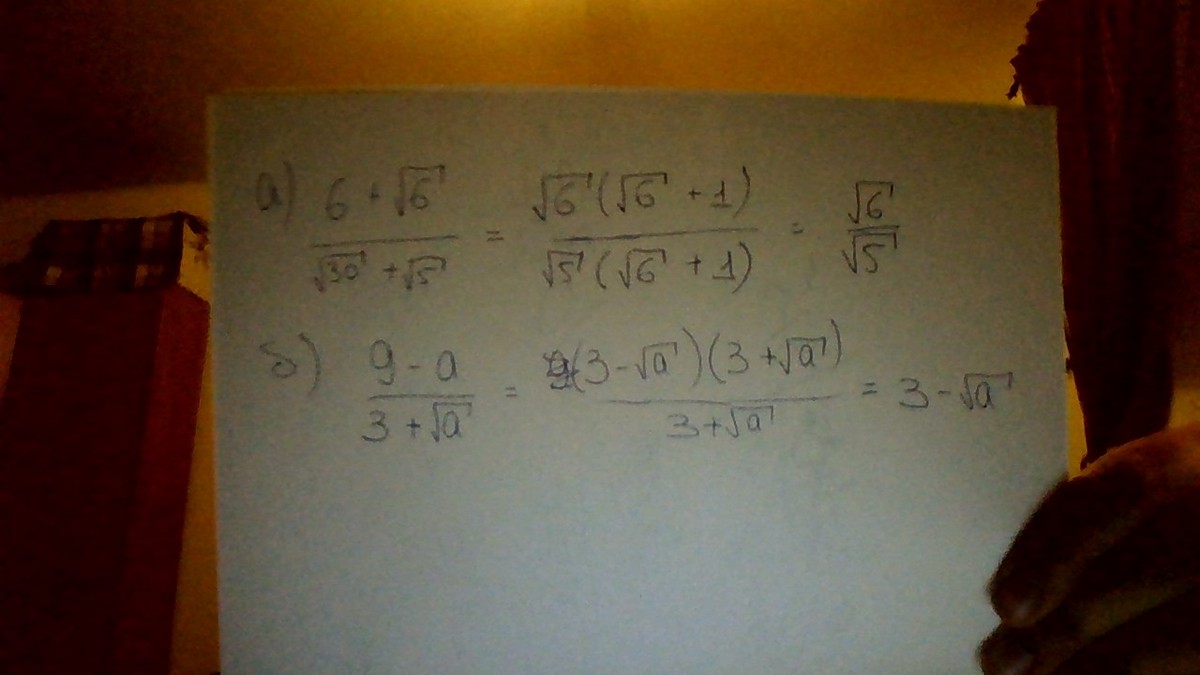 а) (6 + √6) / (√30 + √5) = √6(√6 + 1) / √5(√6 + 1) = √6 / √5
б) (9 - a) / (3 + √a) = (3 - √a)(3 + √a) / (3 + √a) = 3 - √a